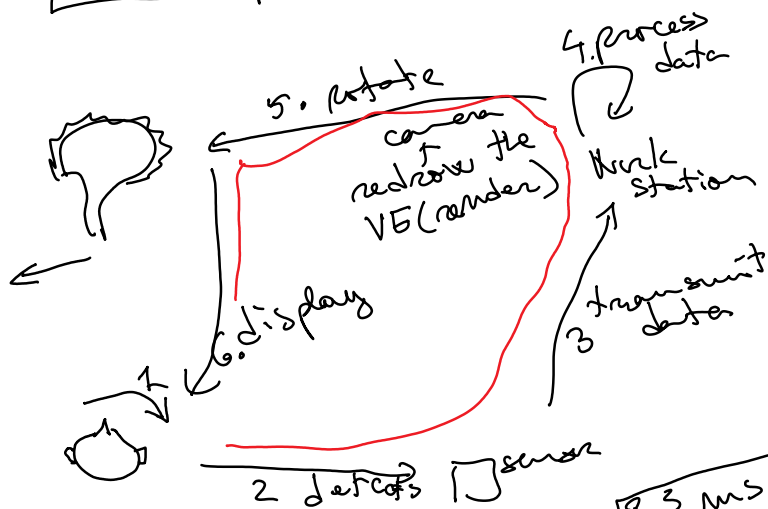 4. process
data
5. rotate
camera
redrow the
VE (render)
Work
station
transmit
data
3
6. display
1
2 detcots
sensor
3 ms